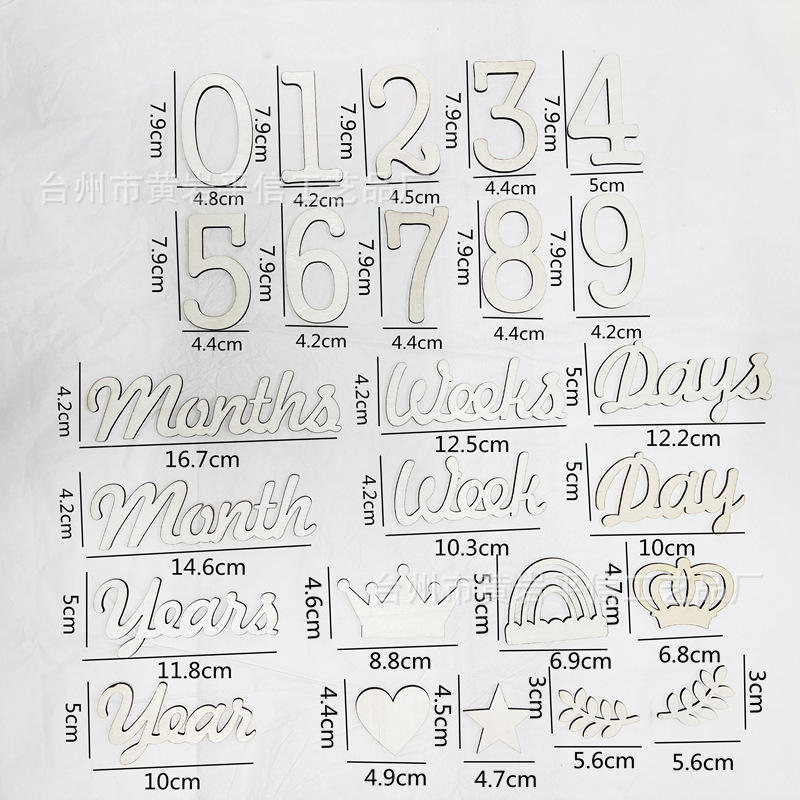 7.9cm 0 7.9cm 1 7.9cm 2 7.9cm 3 7.9cm 4
台州市黄岩平信工艺品厂
4.8cm 4.2cm 4.5cm 4.4cm 5cm
7.9cm 5 7.9cm 6 7.9cm 7 7.9cm 8 7.9cm 9
4.4cm 4.2cm 4.4cm 4.4cm 4.2cm
4.2cm Months 4.2cm Weeks 5cm Days
16.7cm 12.5cm 12.2cm
4.2cm Month 4.2cm Week 5cm Day
14.6cm 10.3cm 10cm
5cm Years 4.6cm 5.5cm 4.7cm
台州市黄岩平信工艺品厂
11.8cm 8.8cm 6.9cm 6.8cm
5cm Year 4.4cm 4.5cm 3cm 3cm
10cm 4.9cm 4.7cm 5.6cm 5.6cm